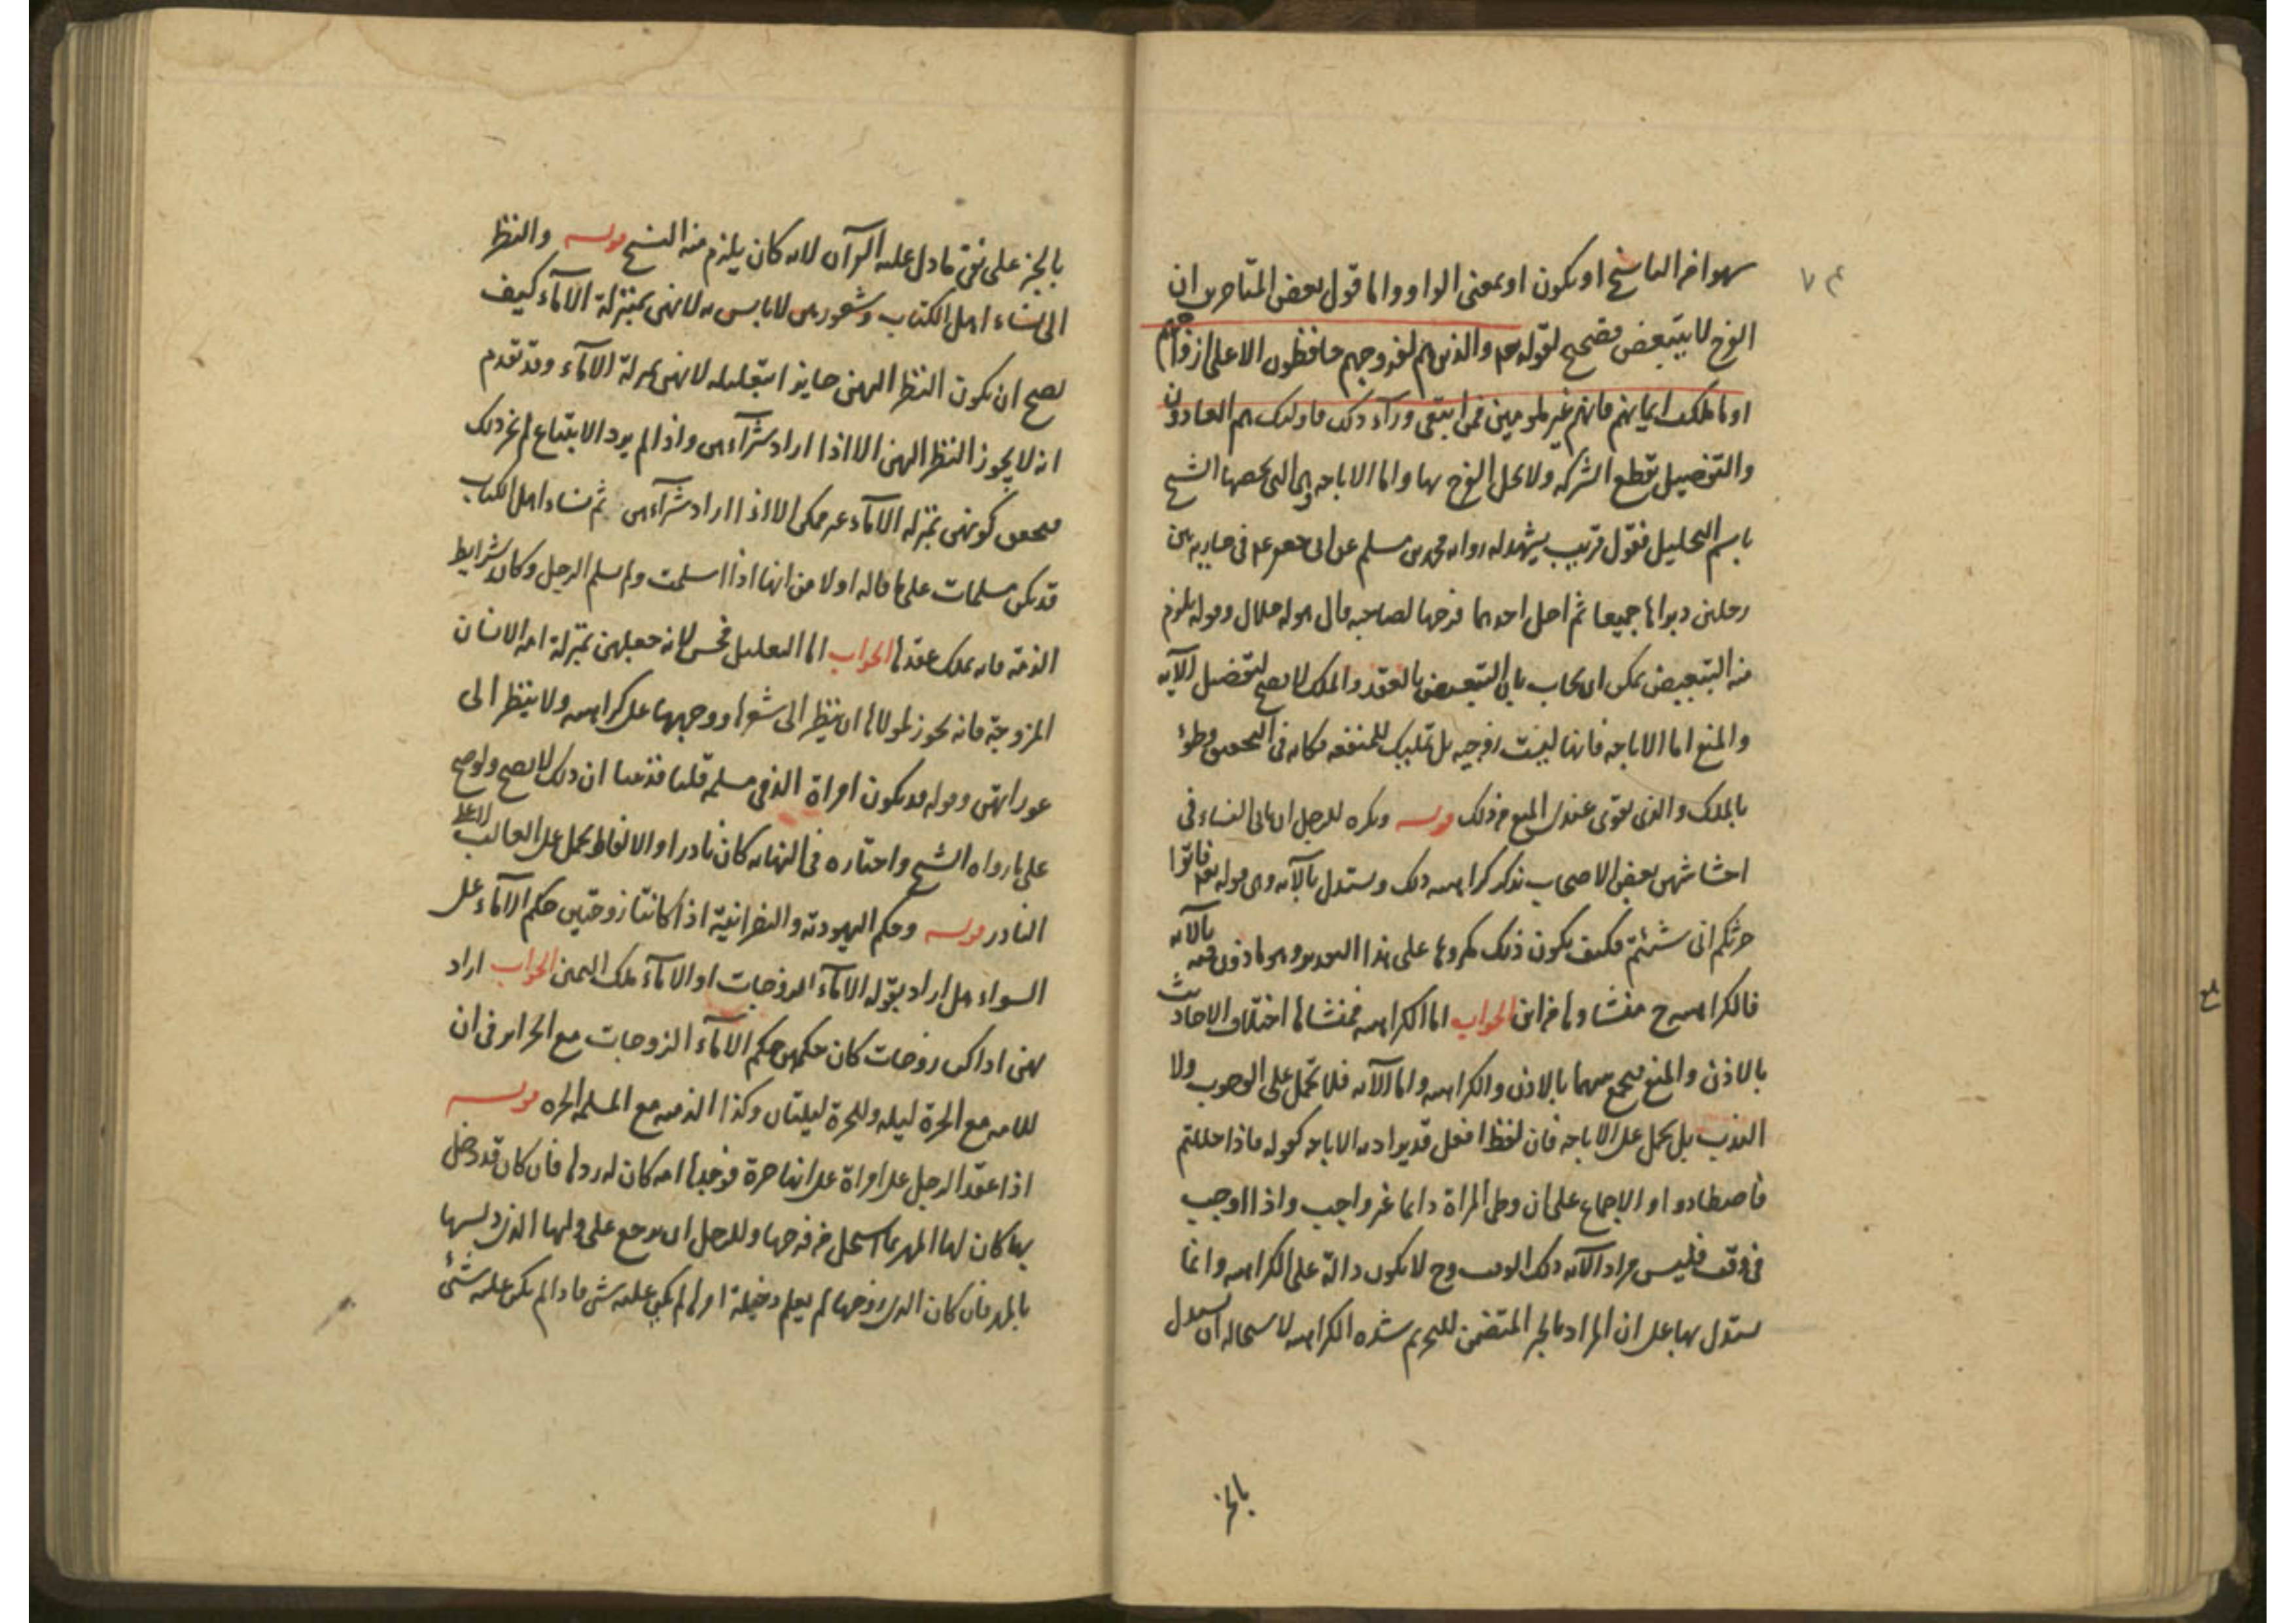 سهوا من الناسخ او یکون او بمعنی الواو واما قول بعض المتاخرین ان
الفرج لا یتبعض فصحیح لقوله تعم والذین هم لفروجهم حافظون الا علی ازواجهم
او ما ملکت ایمانهم فانهم غیر ملومین فمن ابتغی ورآء ذلک فاولئک هم العادون
والتفصیل یقطع الشرکه ولا یحل الفرج بها واما الاباحه وهی التی یخصها الشیخ
باسم التحلیل فقول قریب یشهد له روایه محمد بن مسلم عن ابی جعفر ع فی جاریه بین
رجلین دبراها جمیعا ثم احل احدهما فرجها لصاحبه قال هو له حلال وقوله یلزم
منه التبعیض یمکن ان یجاب بان التبعیض بالعقد والملک لا یصح لتفصیل الآیه
والمنع اما الاباحه فانها لیست زوجیه بل تملیک للمنفعه فکانه فی التحقیق وطؤ
بالملک والذی یقوی عندی المنع من ذلک قوله ویکره للرجل ان یاتی النساء فی
احشاشهن بعض الاصحاب یذکر کراهیه ذلک ویستدل بالآیه وهی قوله تعم فاتوا
حرثکم انی شئتم فکیف یکون ذلک مکروها علی هذا التقدیر وهو ماذون فیه بالآیه
فالکراهیه ح منشاوها من این الجواب اما الکراهیه فمنشاها اختلاف الاحادیث
بالاذن والمنع فیجمع بینهما بالاذن والکراهیه واما الآیه فلا تحمل علی الوجوب ولا
الندب بل یحمل علی الاباحه فان لفظ افعل قد یراد به الاباحه کقوله فاذا حللتم
فاصطادوا و الاجماع علی ان وطی المراة دایما غیر واجب واذا اوجب
فی وقت فلیس مراد الآیه ذلک الوقت وح لا یکون دالة علی الکراهیه وانما
یستدل بها علی ان المراد بالخبر المتضمن للتحریم شده الکراهیه لاستحاله ان یستدل
بالخبر
بالخبر علی نفی ما دل علیه القرآن لانه کان یلزم منه النسخ قوله والنظر
الی نساء اهل الکتاب وشعورهن لا باس به لانهن بمنزلة الاماء کیف
یصح ان یکون النظر الیهن جایزا بتعلیله لانهن بمنزلة الاماء وقد تقدم
انه لا یجوز النظر الیهن الا اذا اراد شرآءهن واذا لم یرد الابتیاع لم یجز ذلک
فتحقق کونهن بمنزله الاماء غیر ممکن الا اذا اراد شرآءهن ثم نساء اهل الکتاب
قد یکن مسلمات علی ما قاله اولا من انها اذا اسلمت ولم یسلم الرجل وکان بشرایط
الذمة فانه یملک عقدها الجواب اما التعلیل فحسن لانه جعلهن بمنزلة امه الانسان
المزوجة فانه یجوز لمولاها ان ینظر الی شعرها ووجهها علی کراهیه ولا ینظر الی
عوراتهن وقوله قد یکون امراة الذمی مسلمه قلنا قد بینا ان ذلک لا یصح ولو صح
علی ما رواه الشیخ واختاره فی النهایه کان نادرا والالفاظ یحمل علی الغالب لا علی
النادر قوله وحکم الیهودیة والنصرانیة اذا کانتا زوجتین حکم الاماء علی
السواء هل اراد بقوله الاماء المزوجات او الاماء ملک الیمین الجواب اراد
بهن اذا کن زوجات کان حکمهن حکم الاماء الزوجات مع الحرایر فی ان
للامه مع الحرة لیله وللحرة لیلتان وکذا الذمیه مع المسلمه الحره قوله
اذا عقد الرجل علی امراة علی انها حرة فوجدها امه کان له ردها فان کان قد دخل
بها کان لها المهر بما استحل من فرجها وللرجل ان یرجع علی ولیها الذی دلسها
بالمهر فان کان الذی زوجها لم یعلم دخیلة امرها لم یکن علیه شی فاذا لم یکن علیه شئ